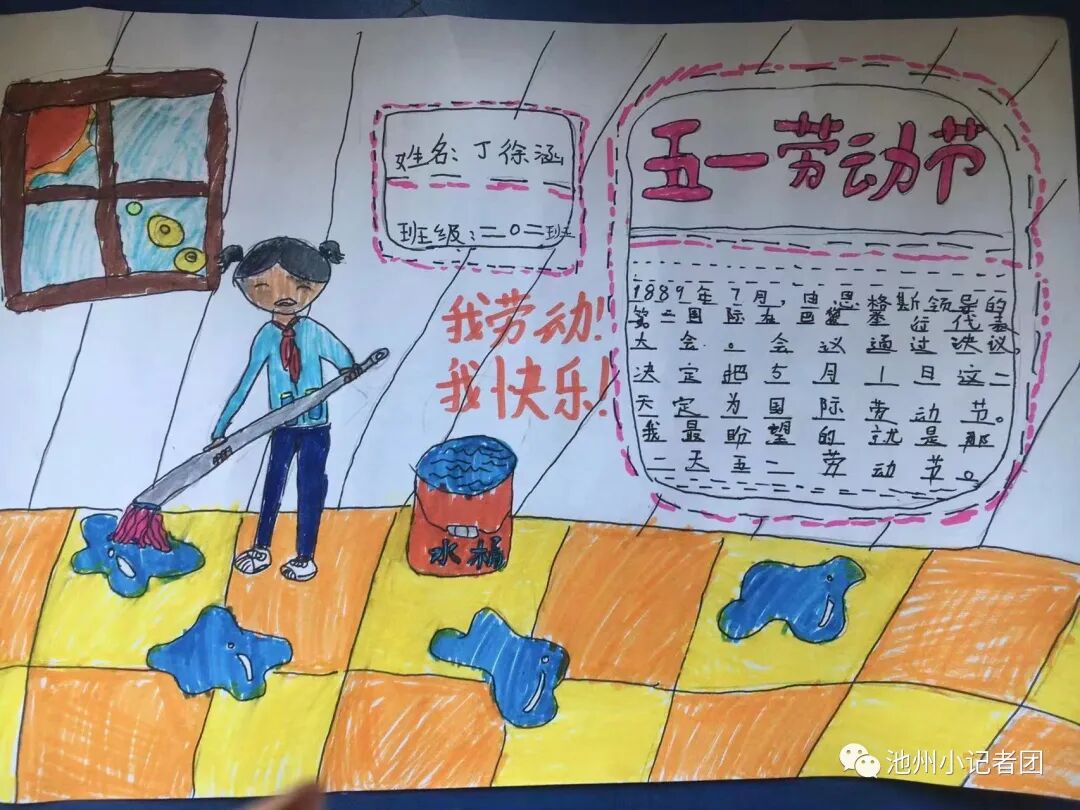 姓名:丁徐涵
班级:二〇二班
五一劳动节
我劳动!
我快乐!
1889年7月,由恩格斯领导的
第二国际在巴黎举行代表
大会。会议通过决议。
决定把5月1日这一
天定为国际劳动节。
我最盼望的就是那
一天五一劳动节。
水桶
池州小记者团